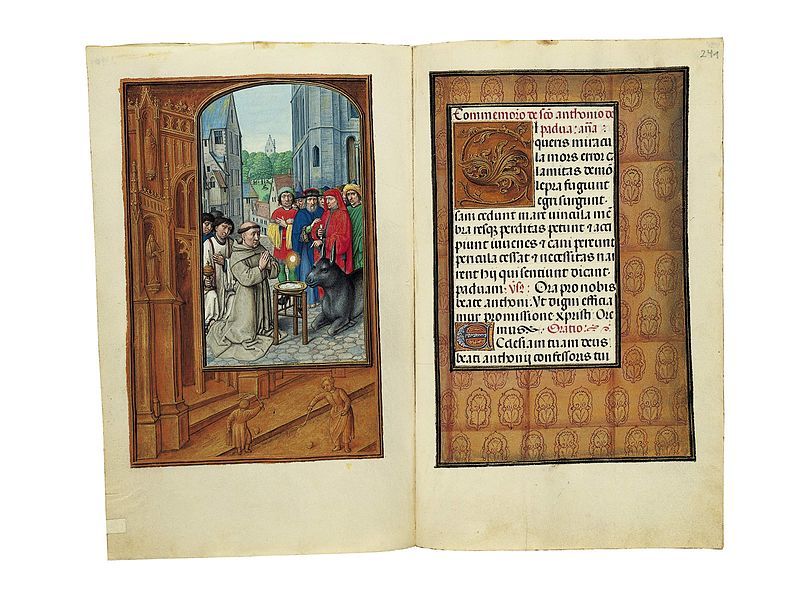 241
Commemoro de sc̃o anthonio de
padua: añа
Si
queris miracu
la mors error c
lamitas demõ
lepra fugiunt
egri surgunt·
sani cedunt mare vincula mẽ
bra resqꝫ perditas petunt ⁊ acci
piunt iuuenes ⁊ cani pereunt
pericula cessat ⁊ necessitas nar
rent hij qui sentiunt dicant
paduani: ℣: Ora pro nobis
beate anthoni. Ut digni effici
mur promissione xpristi Ore
mus Oratio:
Ecclesiam tuam deus
beati anthonij confessoris tui